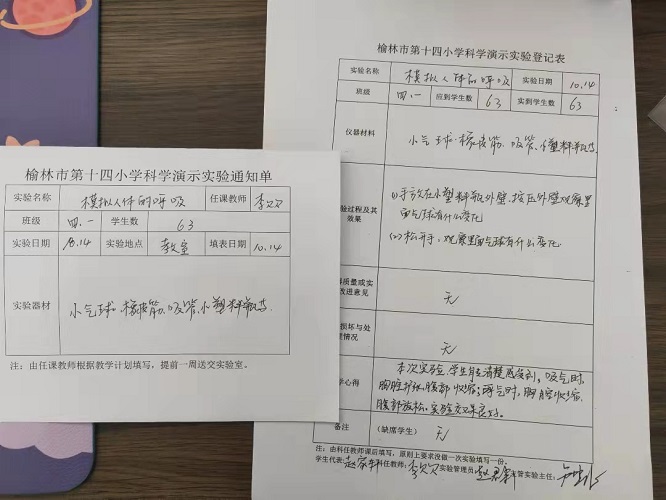 榆林市第十四小学科学演示实验通知单
实验名称 模拟人体的呼吸 任课教师
班级 四.一 学生数 63
实验日期 10.14 实验地点 教室 填表日期 10.14
实验器材 小气球、橡皮筋、吸管、小塑料瓶等
注：由任课教师根据教学计划填写，提前一周送交实验室。
榆林市第十四小学科学演示实验登记表
实验名称 模拟人体的呼吸 实验日期 10.14
班级 四.一 应到学生数 63 实到学生数 63
仪器材料 小气球、橡皮筋、吸管、小塑料瓶等
验过程及其
效果
(1)手放在小塑料瓶外壁,按压外壁观察里
面气球有什么变化
(2)松开手,观察里面气球有什么变化
质量或实
改进意见
无
损坏与处
情况
无
学心得
本次实验,学生能清楚感受到,吸气时,
胸腔扩张,腹部收缩;呼气时,胸腔收缩,
腹部放松。实验效果良好。
备注 (缺席学生) 无
注：由科任教师课后填写，原则上要求没做一次实验填写一份。
学生代表: 科任教师: 实验管理员: 主管实验主任: